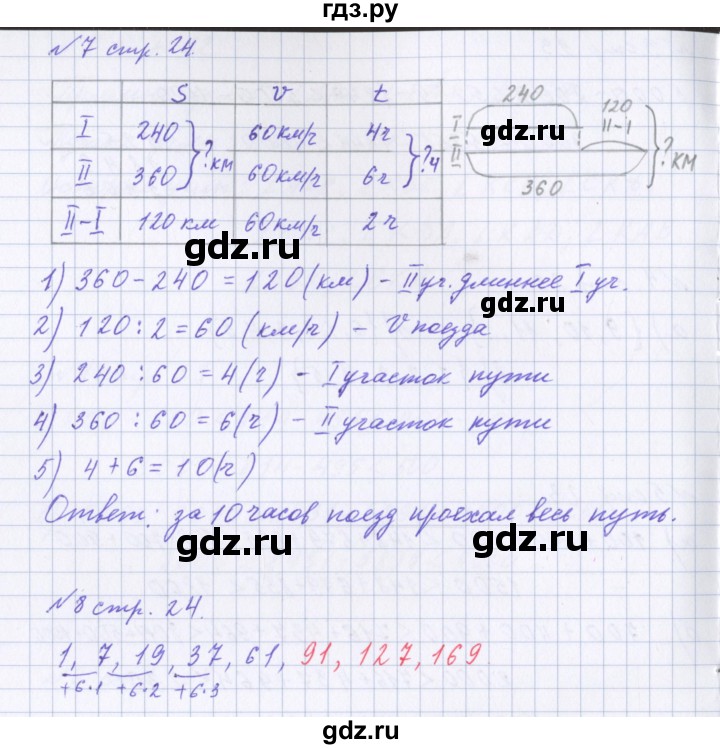 гдз.ру
№7 стр. 24.
S V t
I 240 60км/ч 4ч
II 360 60км/ч 6ч
?км ?ч
II-I 120 км 60км/ч 2ч
240
120
I II-I
II
?км
360
gdz.ru
gdz.ru
1) 360-240=120(км) - II уч. длиннее I уч.
gdz.ru
gdz.ru
2) 120:2=60 (км/ч) - V поезда
3) 240:60=4(ч) - I участок пути
4) 360:60=6(ч) - II участок пути
5) 4+6=10(ч)
Ответ: за 10 часов поезд проехал весь путь.
gdz.ru
gdz.ru
№8 стр. 24.
1, 7, 19, 37, 61, 91, 127, 169
+6·1 +6·2 +6·3
gdz.ru
gdz.ru